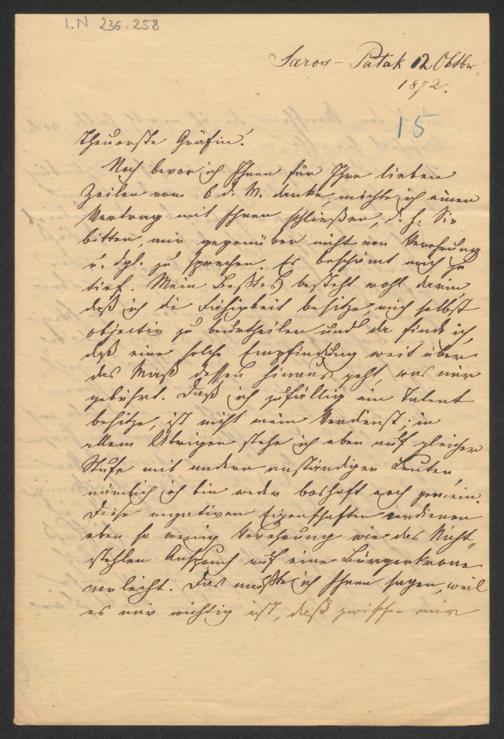 I.N 236.258
Saros-Patak 12 Oktbr.
1872.
15
Theuerste Gräfin!
Noch bevor ich Ihnen für Ihre lieben
Zeilen vom 6 d. M. danke, möchte ich einen
Vertrag mit Ihnen schließen, d. h. Sie
bitten, mir gegenüber nicht von Verehrung
u. dgl. zu sprechen. Es beschämt mich zu
tief. Mein Bestes besteht wohl darin
daß ich die Fähigkeit besitze, mich selbst
objectiv zu beurtheilen und da finde ich,
daß eine solche Empfindung weit über
das Maß dessen hinaus geht, was mir
gebührt. Daß ich zufällig ein Talent
besitze, ist nicht mein Verdienst; in
allem Übrigen stehe ich eben auf gleicher
Stufe mit andern anständigen Leuten,
nämlich ich bin weder boshaft noch gemein.
Diese negativen Eigenschaften verdienen
eben so wenig Verehrung wie das Nicht-
stehlen Anspruch auf eine Bürgerkrone
verleiht. Das mußte ich Ihnen sagen, weil
es mir wichtig ist, daß zwischen mir